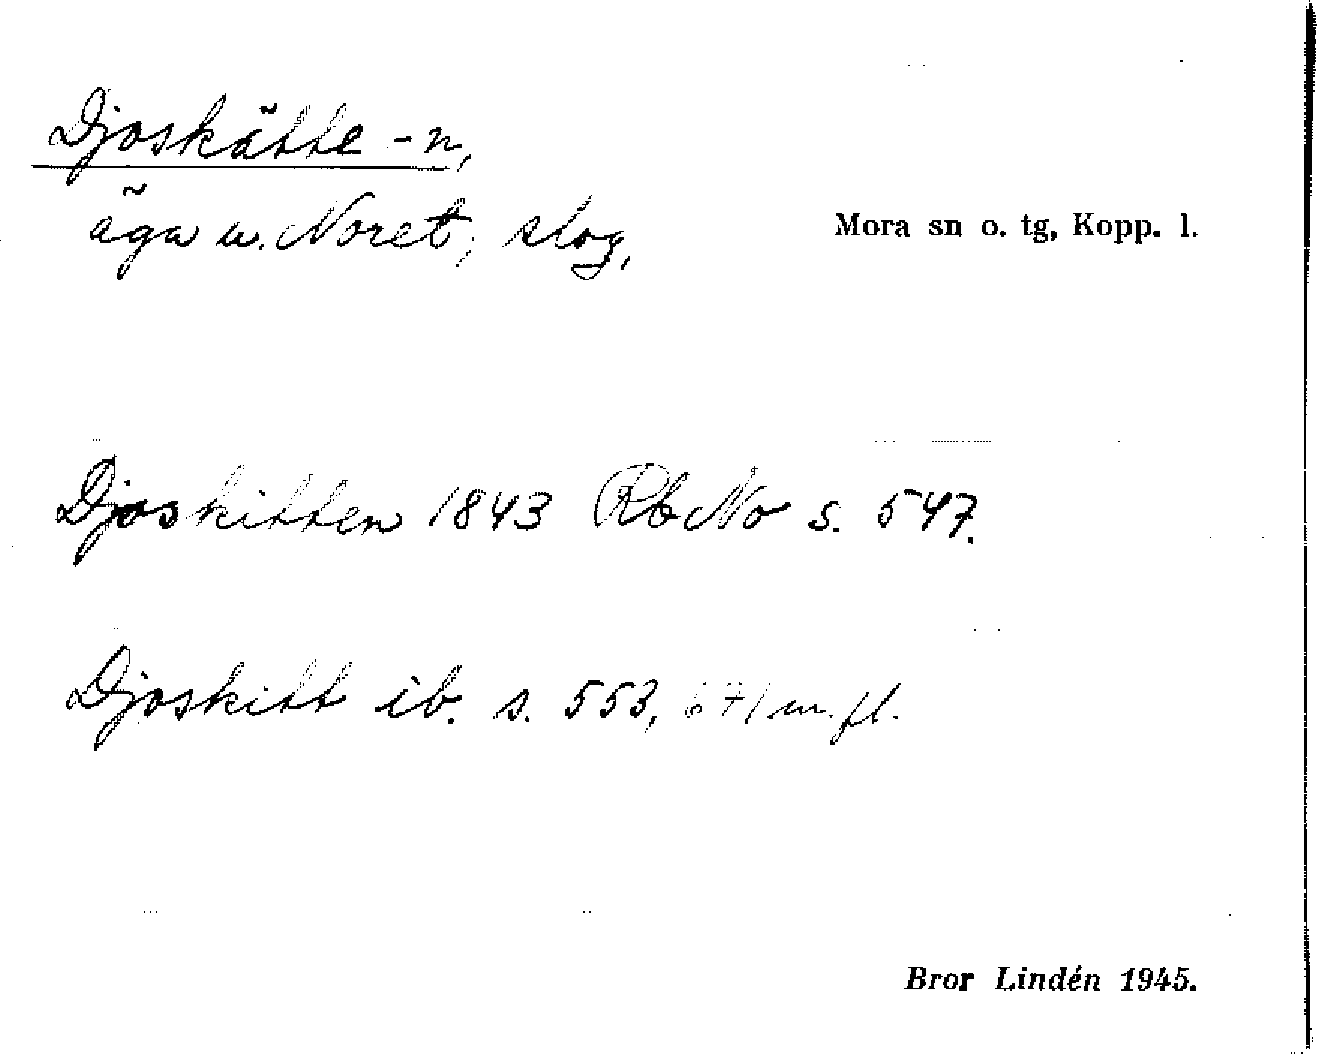 Djoskätte -n,
äga u. Noret; slog,
Mora sn o. tg, Kopp. l.
Djoskitten 1843 Rb No s. 547.
Djoskitt ib. s. 553, 671 m. fl.
Bror Lindén 1945.